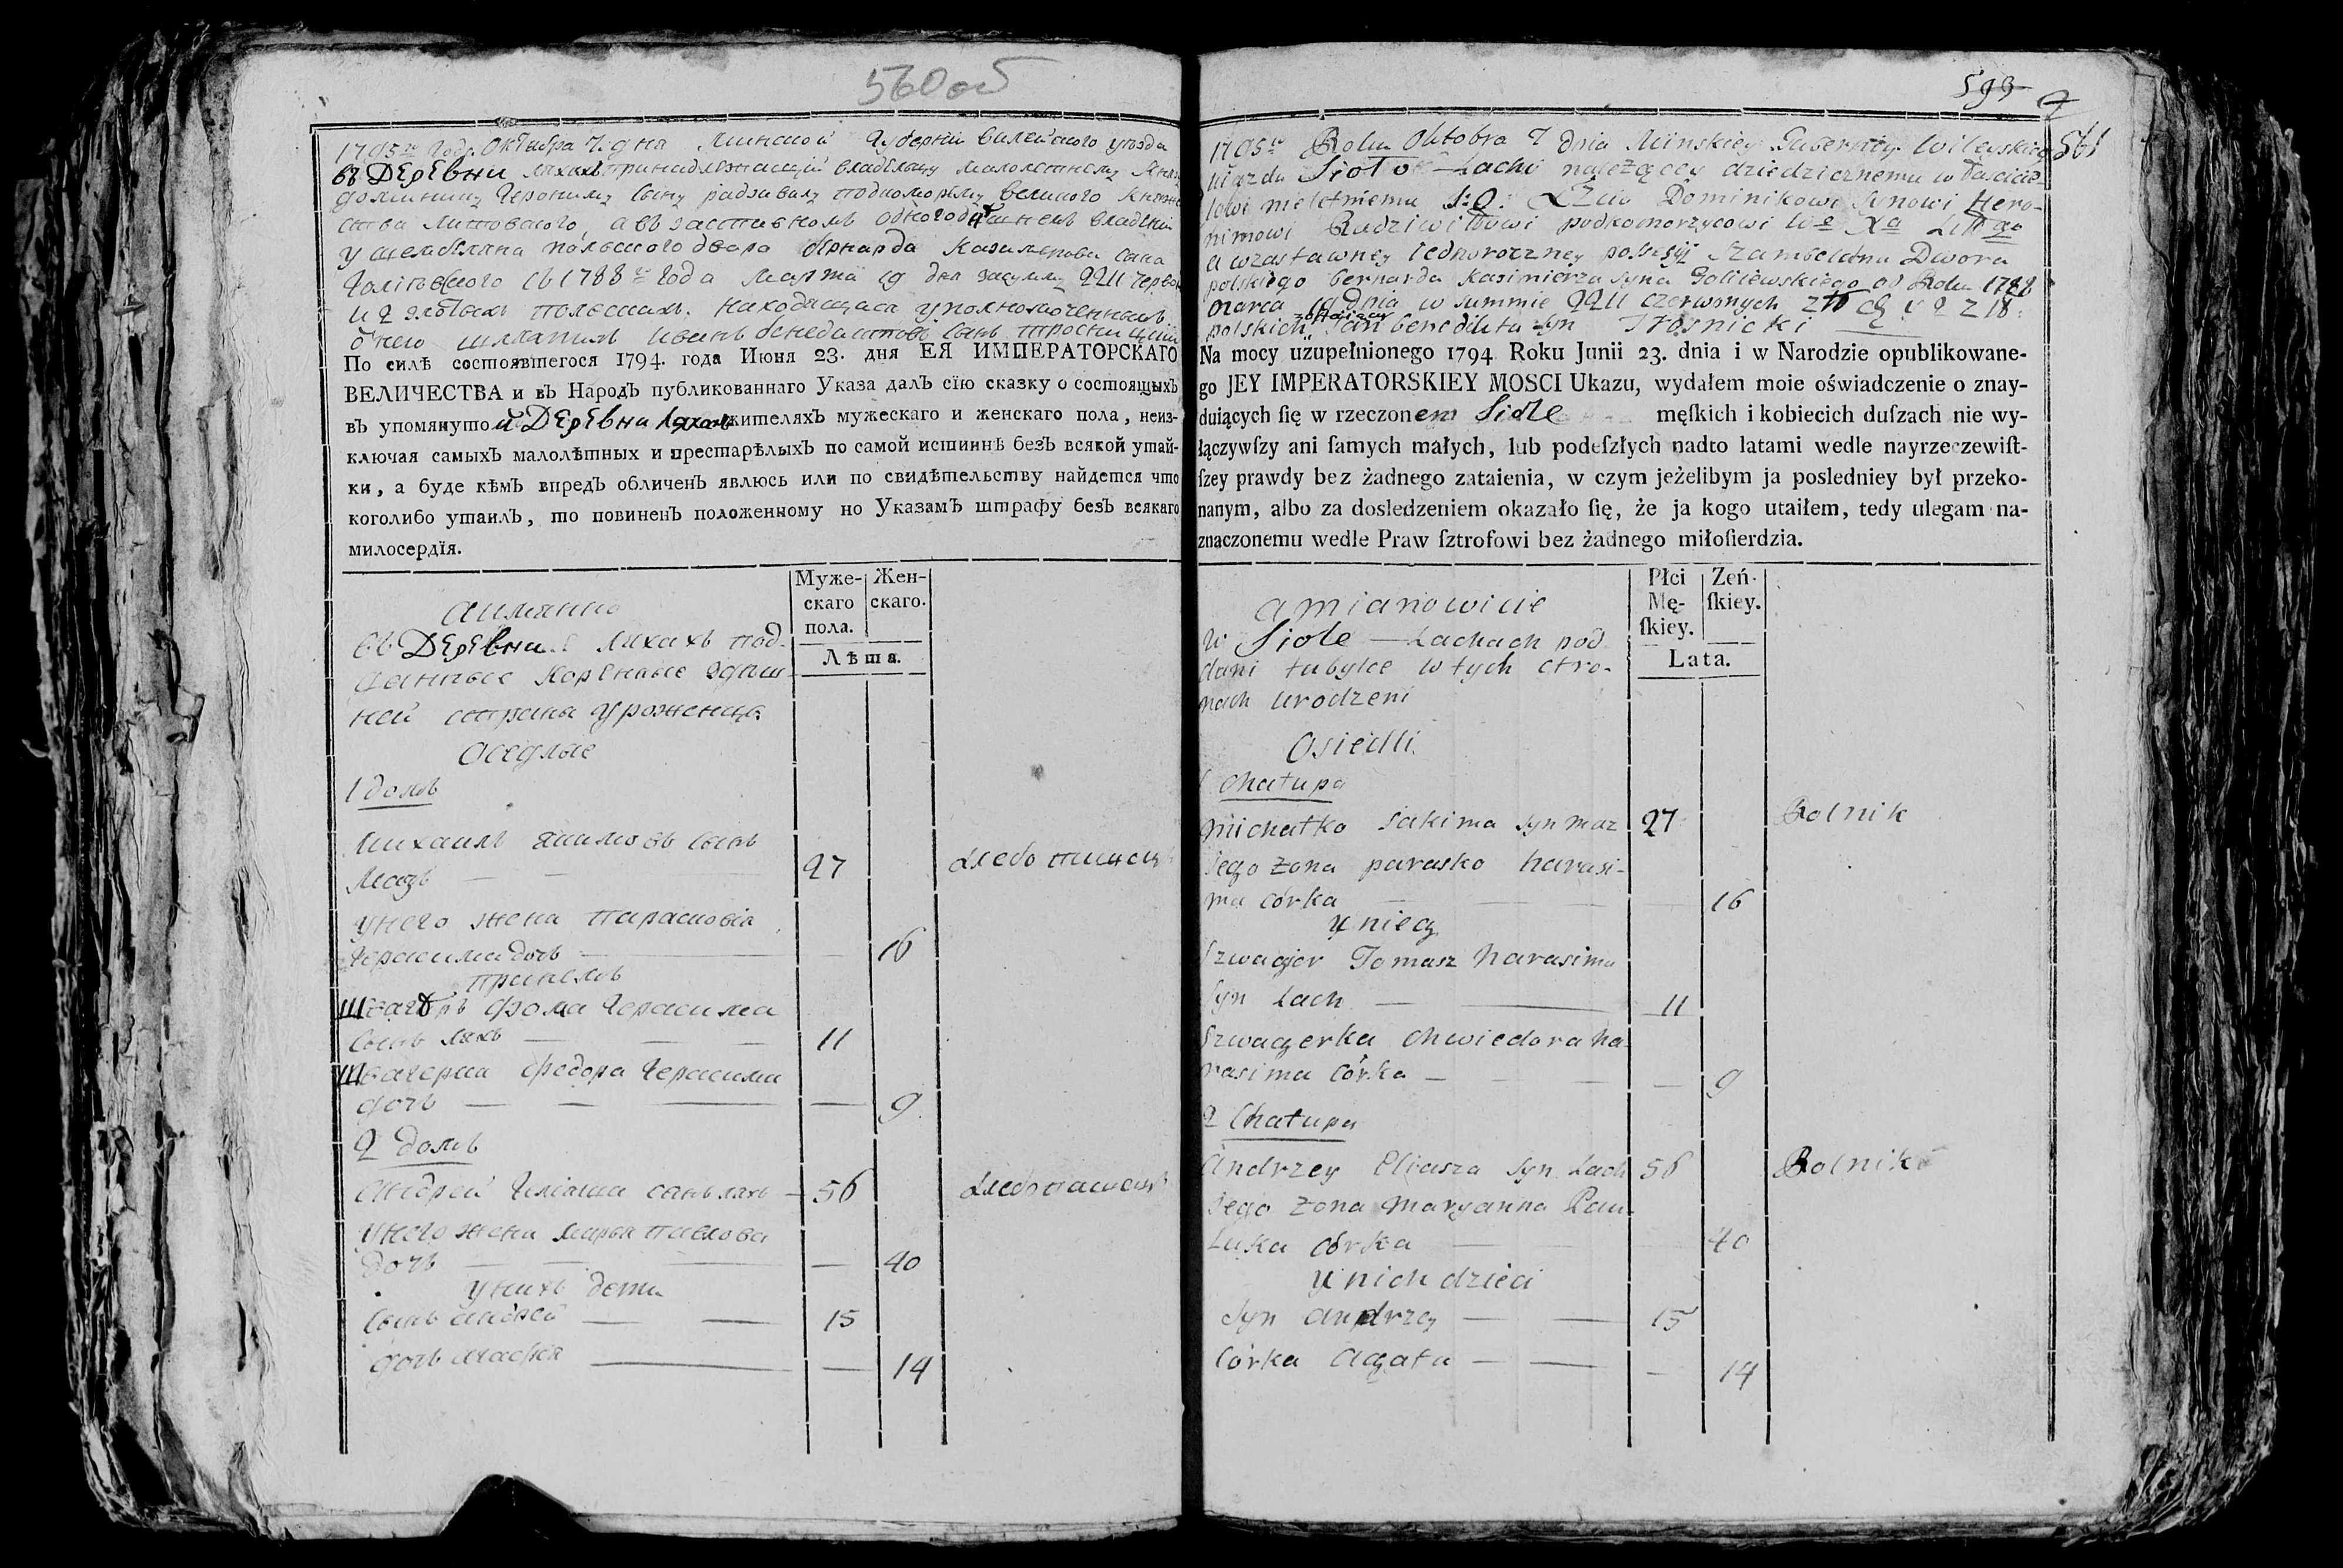 560 об
1795го Года Октября 7. дня Минской Губернии Вилейского уезда
въ Деревни Ляхахъ принадлежащей владельцу малолетнему
Доминику Герониму сыну радзивилу подкоморыму великого княже
ства литовского, а въ заставномъ одногодишнемъ владении
у шамбеляна польского двора бернарда Казимирова сына
1788го Года Марта 19 дня засумму 2211 черво
и 2 злотыхъ польскихъ. находящися уполномоченнымъ
Иванъ бенедиктовъ сынъ
По силѣ состоявшегося 1794. года Июня 23. дня ЕЯ ИМПЕРАТОРСКАГО
ВЕЛИЧЕСТВА и въ НародЪ публикованнаго Указа далЪ сїю сказку о состоящыхЪ
въ упомянутой Деревни Ляхахъ жителяхЪ мужескаго и женскаго пола, неиз-
ключая самыхЪ малолѣтных и престарѣлыхЪ по самой истиннѣ безЪ всякой утай-
ки, а буде кѣмЪ впредЪ обличенЪ явлюсь или по свидѣтельству найдется что
коголибо утаилЪ, то повиненЪ положенному по УказамЪ штрафу безЪ всякаго
милосердїя.
Муже-скаго пола.
Жен-скаго.
Лѣта.
аимянно
въ Деревни Ляхахъ под
данные Коренные здеш
ней страны уроженцы
Оседлые
1 домъ
Михаилъ якимовъ сынъ
Мазъ — — 27 хлебопашецъ
унего жена парасковія
Герасима дочь — — 16
принемъ
Швагеръ фома Герасима
сынъ ляхъ — — — 11
Швагерка федора Герасима
дочь — — — — 9
2 домъ
Андрей Гиліаша сынъ ляхъ — 56 хлебопашецъ
унего жена марья павлова
дочь — — — — 40
унихъ дети
сынъ андрей — — 15
дочь агафія — — 14
593
561
1795го Roku Oktobra 7 dnia Minskiey Guberniey Wileyskiego
uiazdu Sioło Lachi należącey dziedzicznemu własciciε-
lowi nieletniemu Dominikowi synowi Hero-
nimowi Radziwiłłowi podkomorzycowi
a wzastawney iednoroczney possesyi szambelana Dwora
polskiego bernarda Kasimierza syna od Roku 1788
marca 19 dnia w summie 2211 czerwonych
polskich zostaiący Jan benedikta syn Trosnicki
Na mocy uzupełnionego 1794 Roku Junii 23. dnia i w Narodzie opublikowane-
go JEY IMPERATORSKIEY MOSCI Ukazu, wydałem moie oświadczenie o znay-
duiących ſię w rzeczonem Siole męſkich i kobiecich duſzach nie wy-
łączywſzy ani ſamych małych, lub podeſzłych nadto latami wedle nayrzeczewiſt-
ſzey prawdy bez żadnego zataienia, w czym jeżelibym ja posledniey był przeko-
nanym, albo za dosledzeniem okazało ſię, że ja kogo utaiłem, tedy ulegam na-
znaczonemu wedle Praw ſztrofowi bez żadnego miłoſierdzia.
Płci Mę-ſkiey.
Zeń-ſkiey.
Lata.
amianowicie
w Siole — Lachach pod
dani tubylce w tych stro-
nach urodzeni
Osiedli
1 chałupa
Michałko Jakima syn Maz 27 Rolnik
Jego żona paraska harasi-
ma córka — — — 16
u nieg
Szwagier Tomasz harasima
syn Lach — — 11
Szwagerka Chwiedora ha-
rasima córka — — — — 9
2 Chałupa
Andrzey Eliasza syn Lach 56 Rolnik
Jego żona maryanna Paw-
luka córka — — 40
u nich dzieci
syn andrzey — — 15
córka agata — — — 14